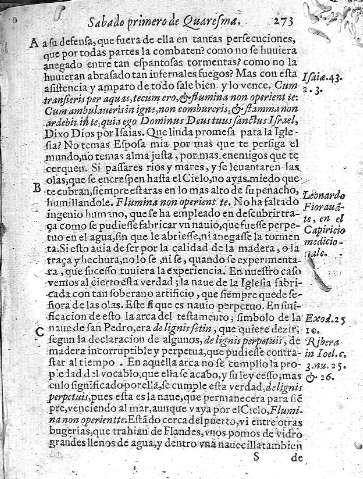 Sabado primero de Quaresma. 273
A a su defensa, que fuera de ella en tantas persecuciones,
que por todas partes la combaten? como no se huviera
anegado entre tan espantosas tormentas? como no la
huuieran abrasado tan infernales fuegos? Mas con esta
asistencia y amparo de todo sale bien, y lo vence. Cum
transieris per aquas, tecum ero, & flumina non operient te:
Cum ambulaueris in igne, non comburèris, & flamma non
ardebit in te, quia ego Dominus Deus tuus sanctus Israel,
Dixo Dios por Isaias. Que linda promesa para la Igle-
sia? No temas Esposa mia por mas que te persiga el
mundo, no temas alma justa, por mas enemigos que te
cerquen. Si passares rios y mares, y se leuantaren las
olas, que se encrespen hasta el Cielo, no ayas miedo que
B te cubran, siempre estaras en lo mas alto de su penacho,
humillandole. Flumina non operient te. No ha faltado
ingenio humano, que se ha empleado en descubrir tra-
ça como se pudiesse fabricar vn nauio, que fuesse perpe-
tuo en el agua, sin que le abriesse, ni anegasse la tormen
ta. Si esto auia de ser por la calidad de la madera, o la
traça y hechura, no lo se, ni se, quando se experimenta-
ra, que sucesso tuuiera la experiencia. En nuestro caso
vemos al cierto esta verdad; la naue de la Iglesia fabri-
cada con tan soberano artificio, que siempre quede se-
ñora de las olas. Este si que es nauio perpetuo. En sini-
ficacion de esto la arca del testamento, simbolo de la
C naue de san Pedro, era de lignis setin, que quiere dezir,
segun la declaracion de algunos, de lignis perpetuis, de
madera incorruptible y perpetua, que pudiesse contra-
star al tiempo. En aquella arca no se cumplio la pro-
piedad del vocablo, que ella se acabo, y su ley cesso, mas
como significado por ella, se cumple esta verdad, de lignis
perpetuis, pues esta es la naue, que permanecera para siē
pre, venciendo al mar, aunque vaya por el Cielo, Flumi-
na non operient te. Estādo cerca del puerto, vi entre otras
bugerias, que trahian de Flandes, vnos pomos de vidro
grandes llenos de agua, y dentro vna nauecilla tambien
S de
Isaiæ. 43.
2. 3.
Leonardo
Fiorauā-
te, en el
Capiricio
medicio-
nale.
Exod. 25
10.
Ribera
in Ioel. c.
3. nu. 25.
& 26.